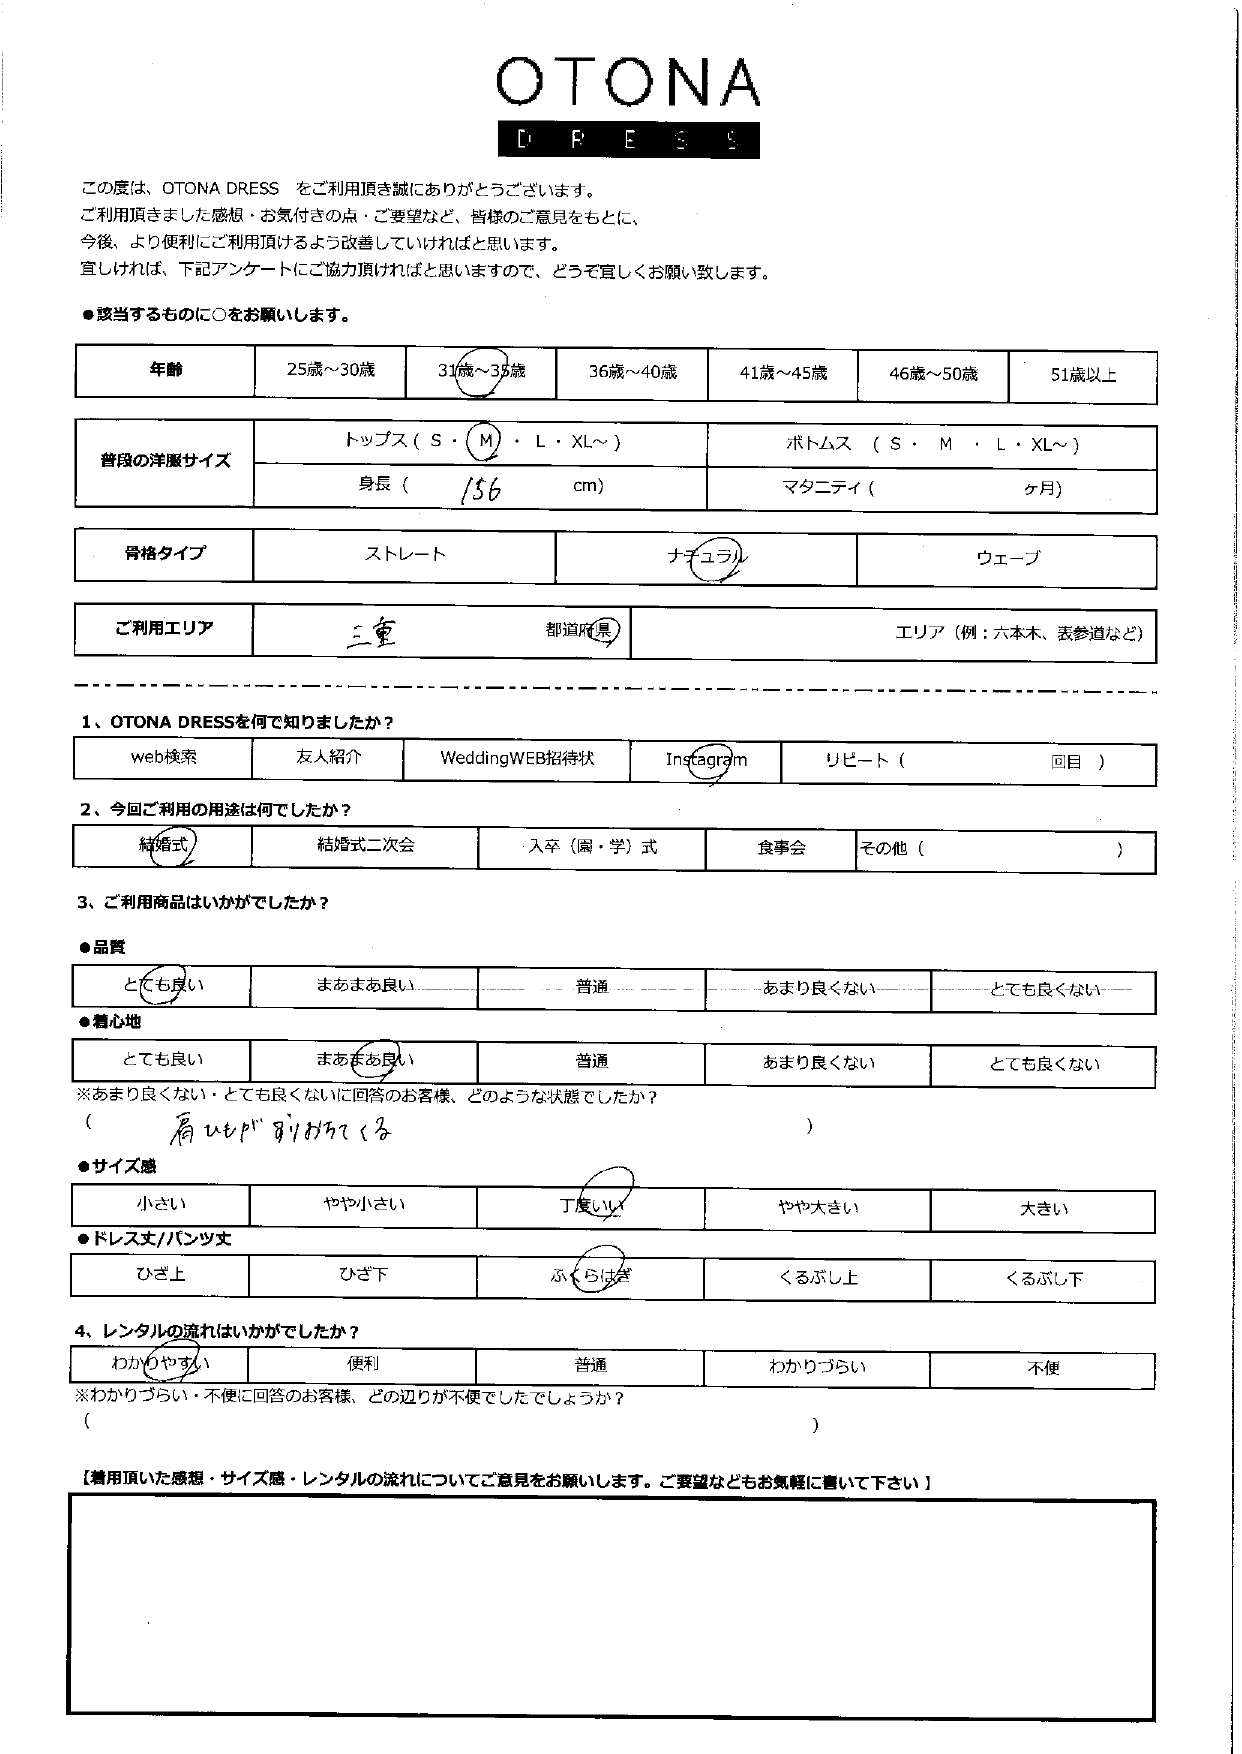 OTONA
DRESS
この度は、OTONA DRESS をご利用頂き誠にありがとうございます。
ご利用頂きました感想・お気付きの点・ご要望など、皆様のご意見をもとに、
今後、より便利にご利用頂けるよう改善していければと思います。
宜しければ、下記アンケートにご協力頂ければと思いますので、どうぞ宜しくお願い致します。
●該当するものに○をお願いします。
年齢 25歳～30歳 31歳～35歳 36歳～40歳 41歳～45歳 46歳～50歳 51歳以上
普段の洋服サイズ
トップス ( S ・ M ・ L ・ XL～ ) ボトムス ( S ・ M ・ L ・ XL～ )
身長 ( 156 cm) マタニティ ( ヶ月)
骨格タイプ ストレート ナチュラル ウェーブ
ご利用エリア 三重 都道府県 エリア（例：六本木、表参道など）
1、OTONA DRESSを何で知りましたか？
web検索 友人紹介 WeddingWEB招待状 Instagram リピート ( 回目 )
2、今回ご利用の用途は何でしたか？
結婚式 結婚式二次会 入卒（園・学）式 食事会 その他 ( )
3、ご利用商品はいかがでしたか？
●品質
とても良い まあまあ良い 普通 あまり良くない とても良くない
●着心地
とても良い まあまあ良い 普通 あまり良くない とても良くない
※あまり良くない・とても良くないに回答のお客様、どのような状態でしたか？
( 肩ひもがずりおちてくる )
●サイズ感
小さい やや小さい 丁度いい やや大きい 大きい
●ドレス丈/パンツ丈
ひざ上 ひざ下 ふくらはぎ くるぶし上 くるぶし下
4、レンタルの流れはいかがでしたか？
わかりやすい 便利 普通 わかりづらい 不便
※わかりづらい・不便に回答のお客様、どの辺りが不便でしたでしょうか？
( )
【着用頂いた感想・サイズ感・レンタルの流れについてご意見をお願いします。ご要望などもお気軽に書いて下さい 】